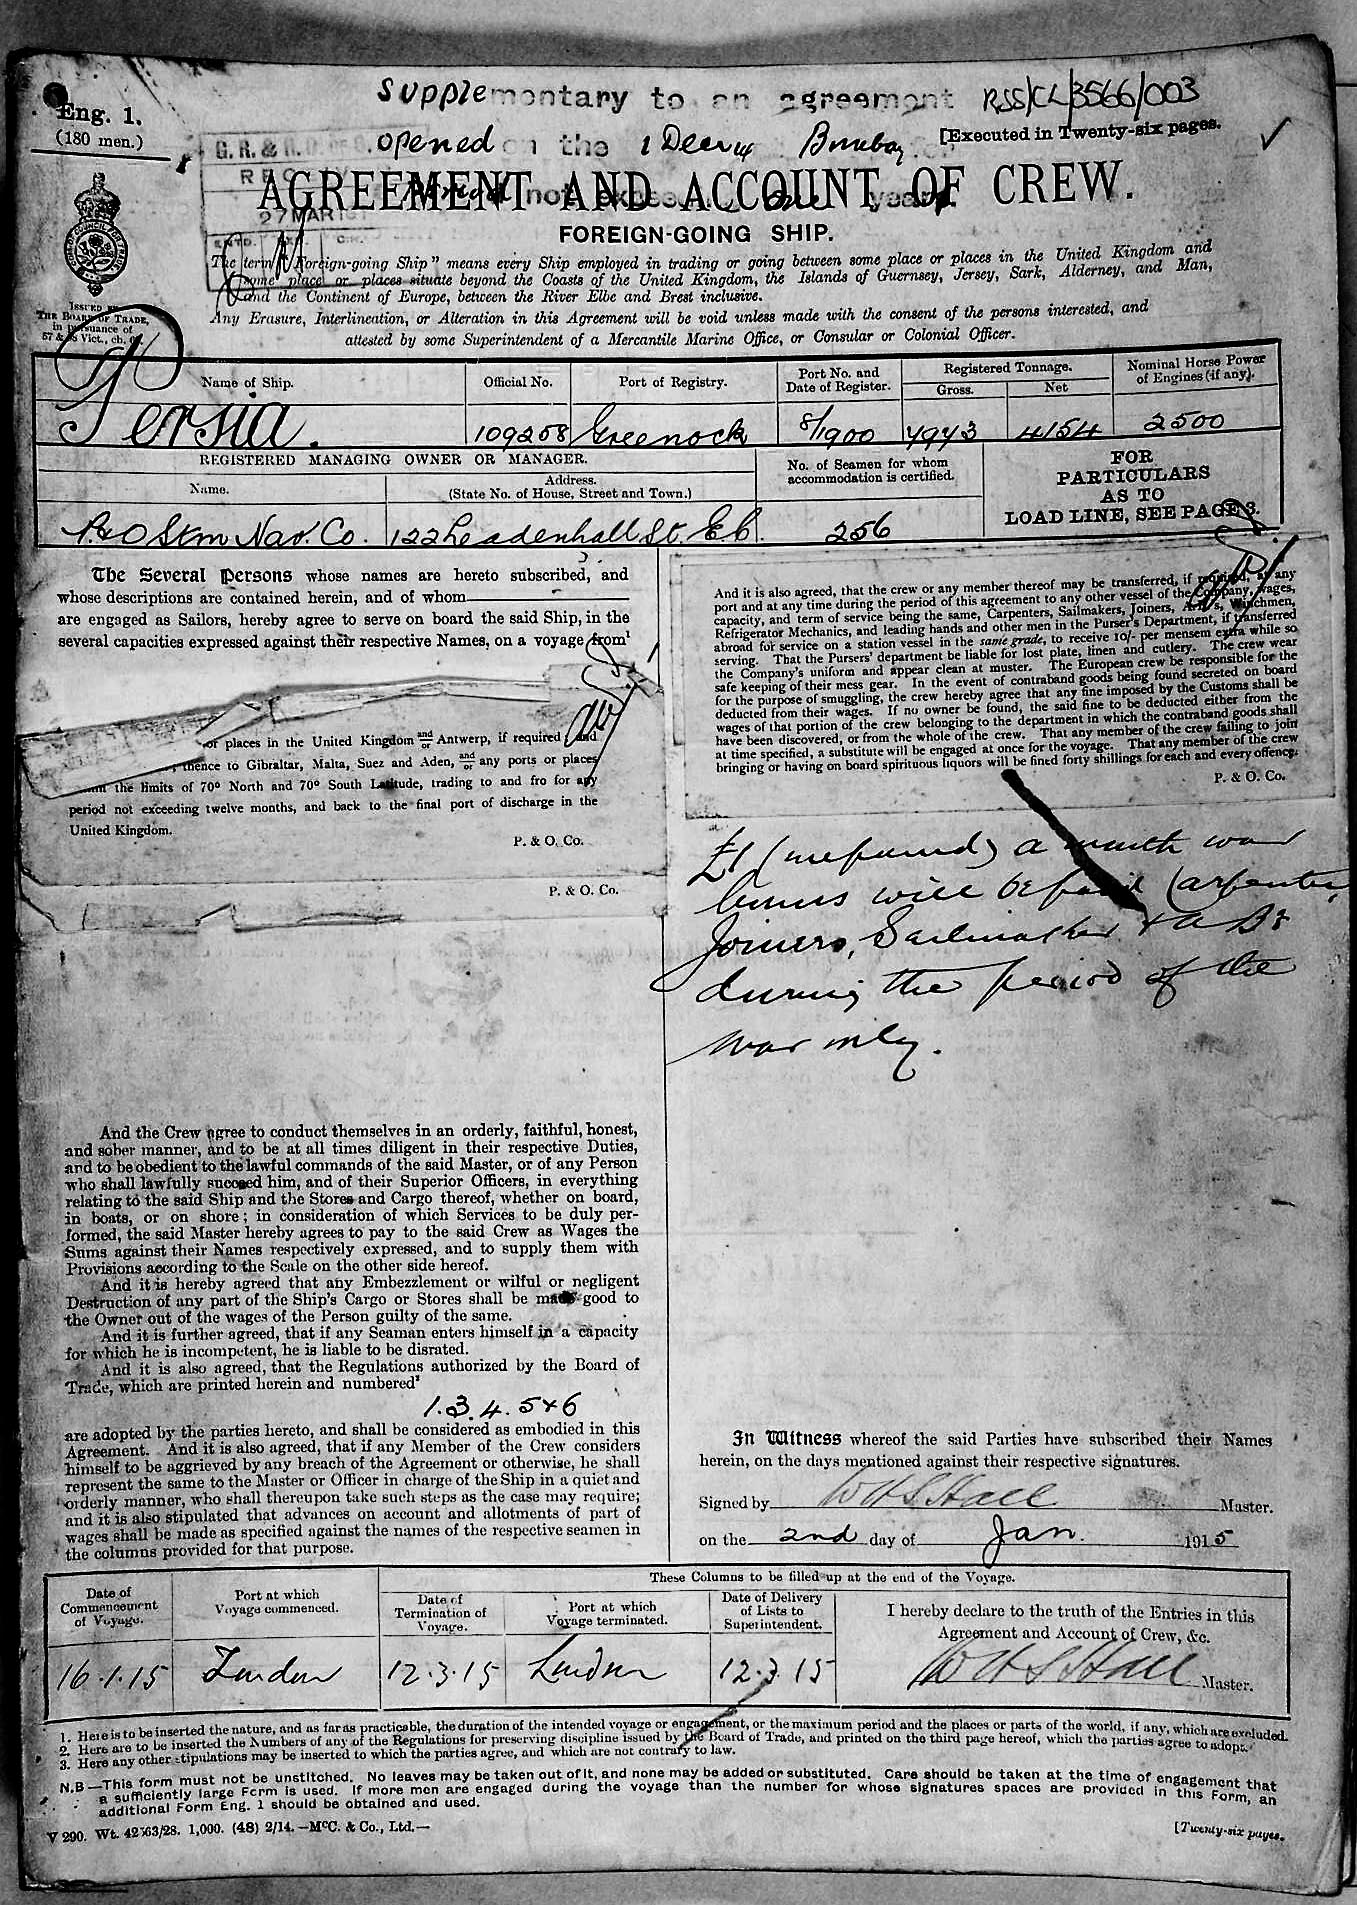 Supplementary to an agreement RSS/CL/3566/003
Eng. 1.
(180 men.)
opened on the 1 Decr 14 Bombay
[Executed in Twenty-six pages.
G. R. & R.
27 MAR 191
not exceed year
AGREEMENT AND ACCOUNT OF CREW.
FOREIGN-GOING SHIP.
The term "Foreign-going Ship" means every Ship employed in trading or going between some place or places in the United Kingdom and
some place or places situate beyond the Coasts of the United Kingdom, the Islands of Guernsey, Jersey, Sark, Alderney, and Man,
and the Continent of Europe, between the River Elbe and Brest inclusive.
Any Erasure, Interlineation, or Alteration in this Agreement will be void unless made with the consent of the persons interested, and
attested by some Superintendent of a Mercantile Marine Office, or Consular or Colonial Officer.
ISSUED BY
THE BOARD OF TRADE,
in pursuance of
57 & 58 Vict., ch. 60.
Name of Ship. Official No. Port of Registry. Port No. and Date of Register. Registered Tonnage. Gross. Net Nominal Horse Power of Engines (if any).
Persia. 109258 Greenock 8/1900 7973 4154 2500
REGISTERED MANAGING OWNER OR MANAGER.
Name. Address. (State No. of House, Street and Town.)
No. of Seamen for whom accommodation is certified.
FOR
PARTICULARS
AS TO
LOAD LINE, SEE PAGE 3.
P & O Stm Nav. Co. 122 Leadenhall St. E.C. 256
The Several Persons whose names are hereto subscribed, and
whose descriptions are contained herein, and of whom
are engaged as Sailors, hereby agree to serve on board the said Ship, in the
several capacities expressed against their respective Names, on a voyage from¹
or places in the United Kingdom and/or Antwerp, if required and
thence to Gibraltar, Malta, Suez and Aden, and/or any ports or places
the limits of 70° North and 70° South Latitude, trading to and fro for any
period not exceeding twelve months, and back to the final port of discharge in the
United Kingdom.
P. & O. Co.
P. & O. Co.
And the Crew agree to conduct themselves in an orderly, faithful, honest,
and sober manner, and to be at all times diligent in their respective Duties,
and to be obedient to the lawful commands of the said Master, or of any Person
who shall lawfully succeed him, and of their Superior Officers, in everything
relating to the said Ship and the Stores and Cargo thereof, whether on board,
in boats, or on shore; in consideration of which Services to be duly per-
formed, the said Master hereby agrees to pay to the said Crew as Wages the
Sums against their Names respectively expressed, and to supply them with
Provisions according to the Scale on the other side hereof.
And it is hereby agreed that any Embezzlement or wilful or negligent
Destruction of any part of the Ship's Cargo or Stores shall be made good to
the Owner out of the wages of the Person guilty of the same.
And it is further agreed, that if any Seaman enters himself in a capacity
for which he is incompetent, he is liable to be disrated.
And it is also agreed, that the Regulations authorized by the Board of
Trade, which are printed herein and numbered²
1. 3. 4. 5 & 6
are adopted by the parties hereto, and shall be considered as embodied in this
Agreement. And it is also agreed, that if any Member of the Crew considers
himself to be aggrieved by any breach of the Agreement or otherwise, he shall
represent the same to the Master or Officer in charge of the Ship in a quiet and
orderly manner, who shall thereupon take such steps as the case may require;
and it is also stipulated that advances on account and allotments of part of
wages shall be made as specified against the names of the respective seamen in
the columns provided for that purpose.
And it is also agreed, that the crew or any member thereof may be transferred, if required, at any
port and at any time during the period of this agreement to any other vessel of the Company, wages,
capacity, and term of service being the same, Carpenters, Sailmakers, Joiners, A.B.'s, Winchmen,
Refrigerator Mechanics, and leading hands and other men in the Purser's Department, if transferred
abroad for service on a station vessel in the same grade, to receive 10/- per mensem extra while so
serving. That the Pursers' department be liable for lost plate, linen and cutlery. The crew wear
the Company's uniform and appear clean at muster. The European crew be responsible for the
safe keeping of their mess gear. In the event of contraband goods being found secreted on board
for the purpose of smuggling, the crew hereby agree that any fine imposed by the Customs shall be
deducted from their wages. If no owner be found, the said fine to be deducted either from the
wages of that portion of the crew belonging to the department in which the contraband goods shall
have been discovered, or from the whole of the crew. That any member of the crew failing to join
at time specified, a substitute will be engaged at once for the voyage. That any member of the crew
bringing or having on board spirituous liquors will be fined forty shillings for each and every offence.
P. & O. Co.
£1 (one pound) a month war
bonus will be paid Carpenter,
Joiners, Sailmaker & A Bs
during the period of the
war only.
In Witness whereof the said Parties have subscribed their Names
herein, on the days mentioned against their respective signatures.
Signed by W H S Hall Master.
on the 2nd day of Jan. 1915
These Columns to be filled up at the end of the Voyage.
Date of Commencement of Voyage. Port at which Voyage commenced. Date of Termination of Voyage. Port at which Voyage terminated. Date of Delivery of Lists to Superintendent.
I hereby declare to the truth of the Entries in this
Agreement and Account of Crew, &c.
16.1.15 London 12.3.15 London 12.3.15 W H S Hall Master.
1. Here is to be inserted the nature, and as far as practicable, the duration of the intended voyage or engagement, or the maximum period and the places or parts of the world, if any, which are excluded.
2. Here are to be inserted the Numbers of any of the Regulations for preserving discipline issued by the Board of Trade, and printed on the third page hereof, which the parties agree to adopt.
3. Here any other stipulations may be inserted to which the parties agree, and which are not contrary to law.
N.B—This form must not be unstitched. No leaves may be taken out of it, and none may be added or substituted. Care should be taken at the time of engagement that
a sufficiently large Form is used. If more men are engaged during the voyage than the number for whose signatures spaces are provided in this Form, an
additional Form Eng. 1 should be obtained and used.
V 290. Wt. 42563/28. 1,000. (48) 2/14.—McC. & Co., Ltd.—
[Twenty-six pages.